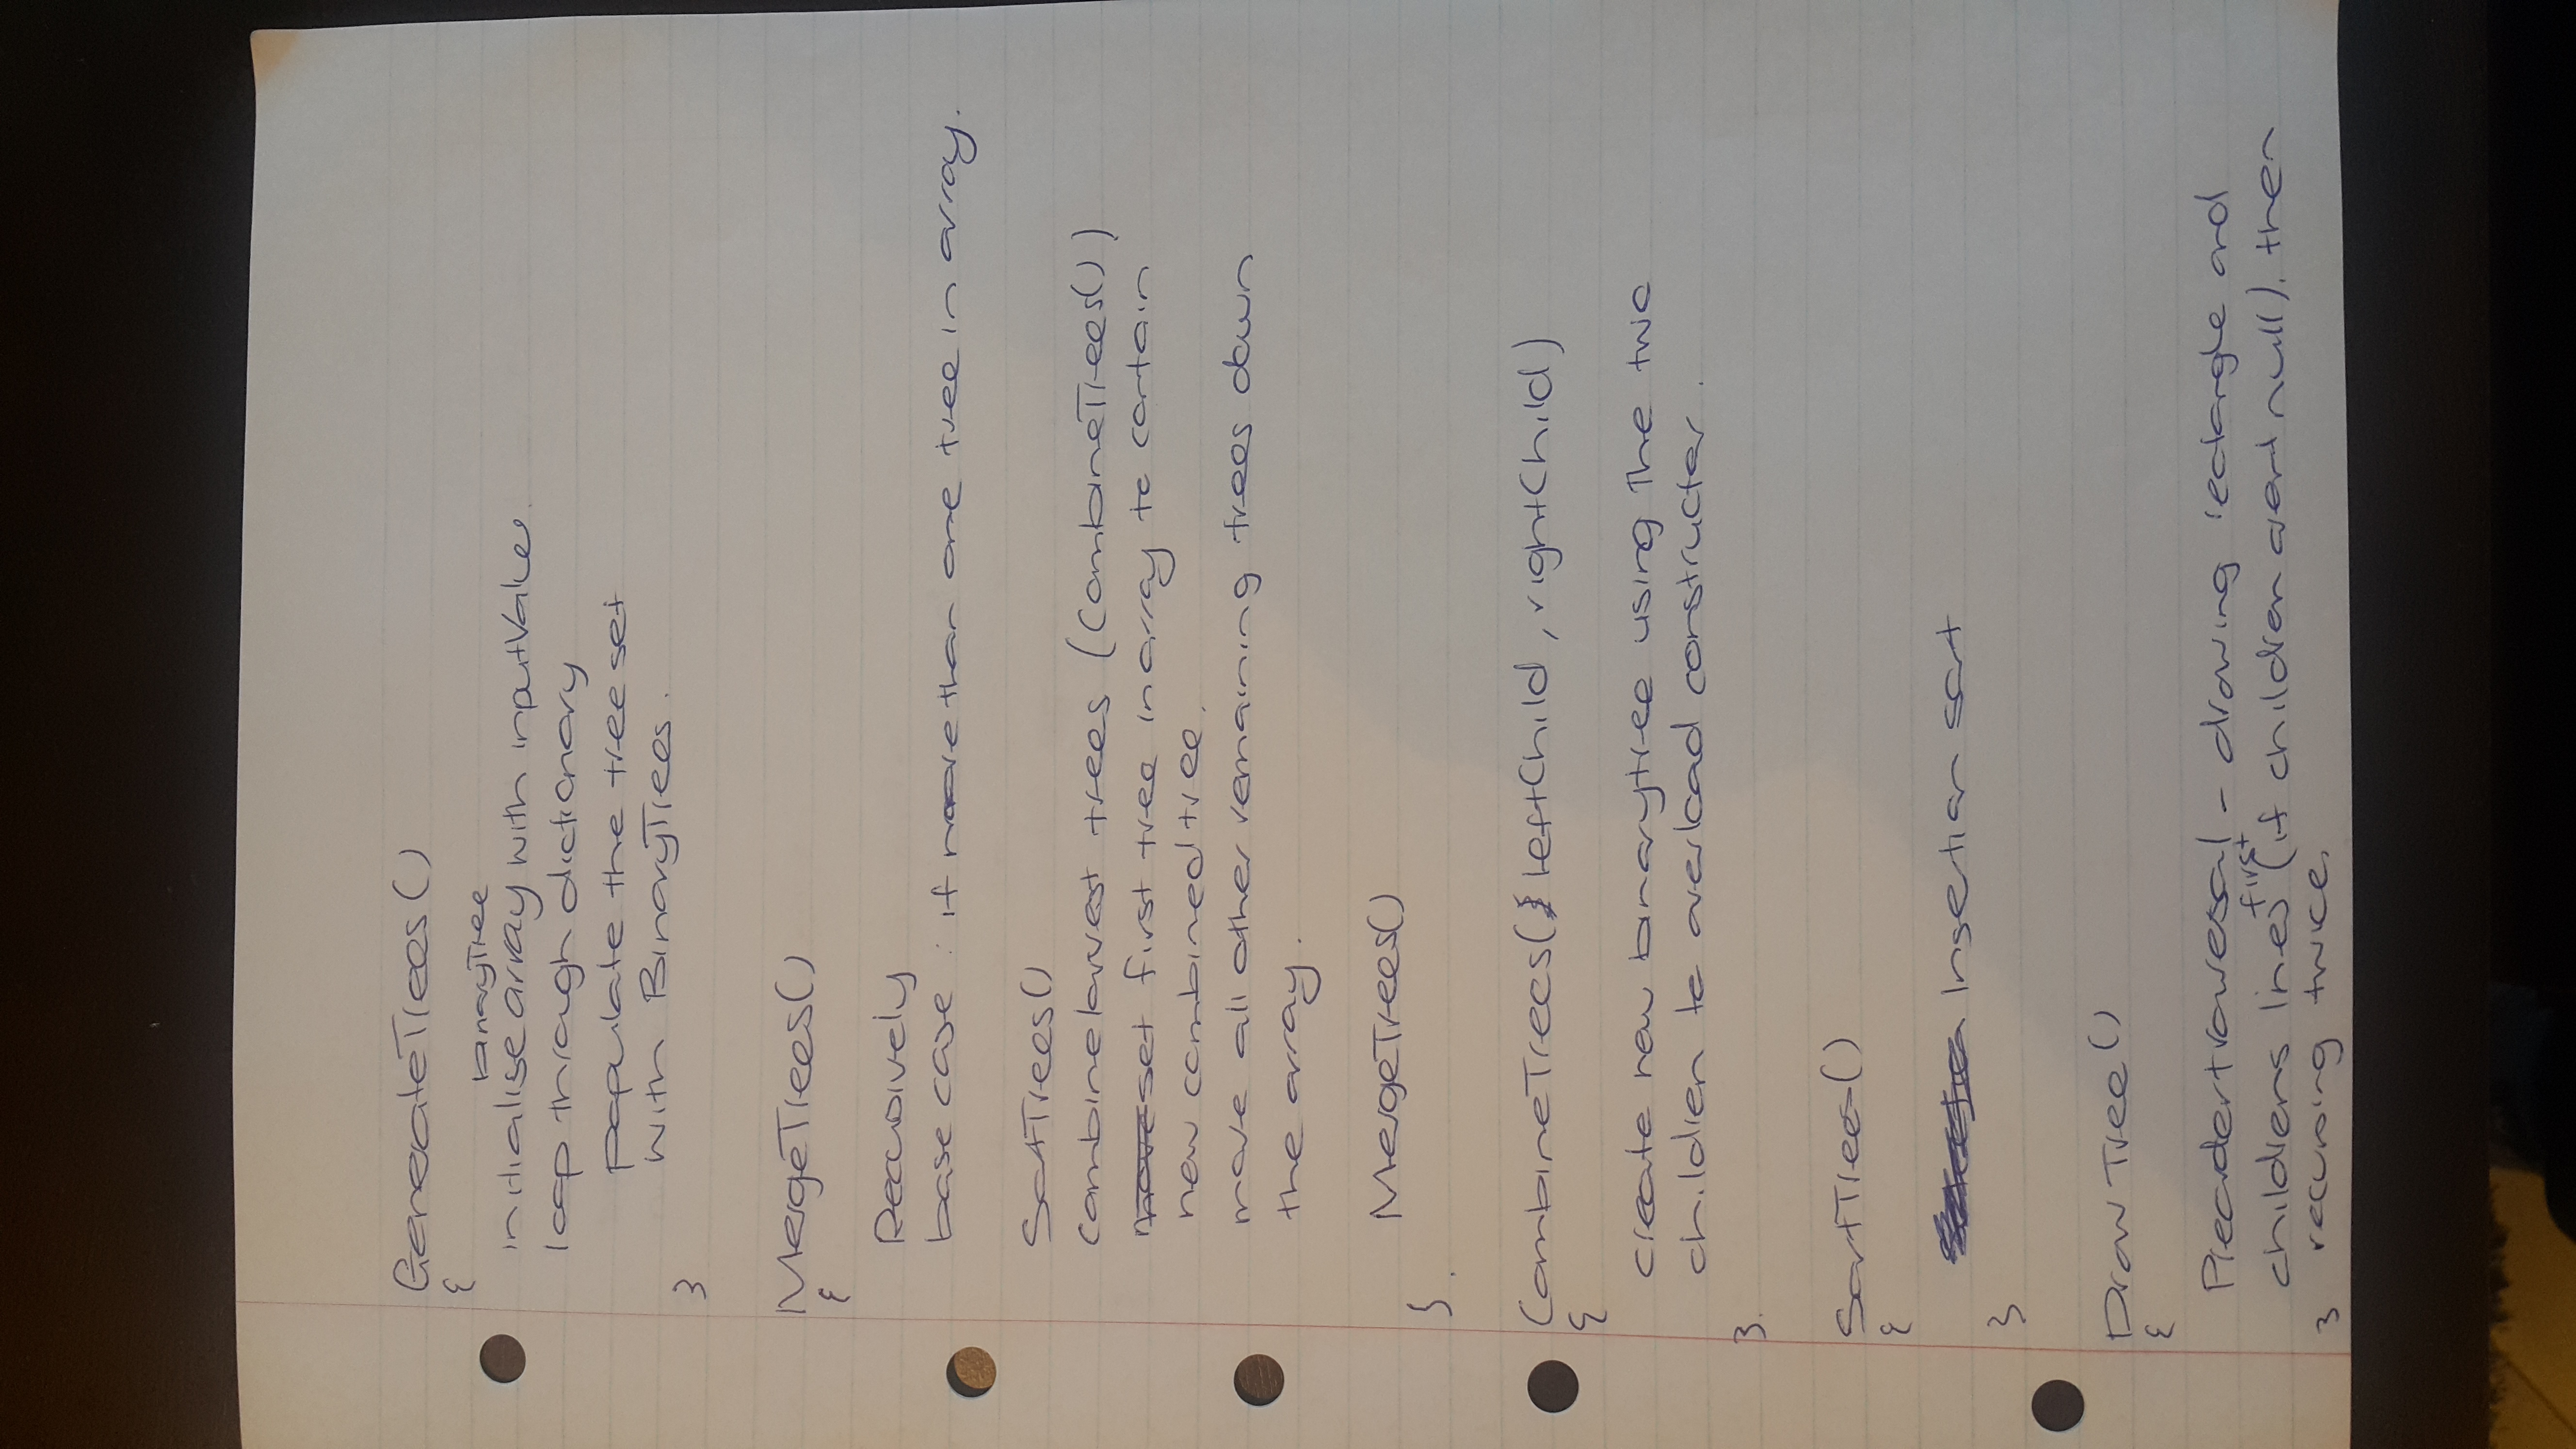 GenerateTrees()
{
binaryTree
initialise array with inputValue.
loop through dictionary
populate the tree set
with BinaryTrees.
}
MergeTrees()
{
Recursively
base case : if more than one tree in array.
SortTrees()
combine lowest trees (CombineTrees())
move set first tree in array to contain
new combined tree.
move all other remaining trees down
the array.
MergeTrees()
}.
CombineTrees( leftChild, rightChild)
{
create new binarytree using the two
children to overload constructer.
}.
SortTrees()
{
Insertion sort
}
Draw Tree()
{
Preorder traversal - drawing rectangle and
first
childrens lines (if children arent null). then
} recursing twice.